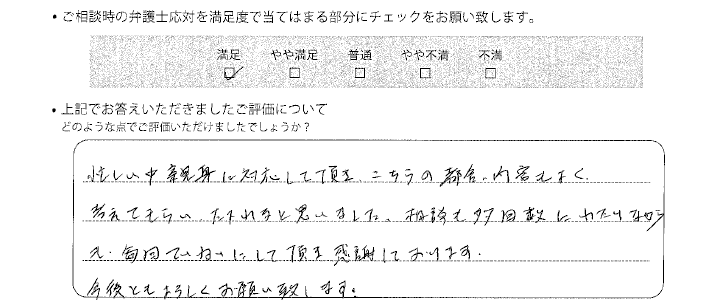 ・ご相談時の弁護士応対を満足度で当てはまる部分にチェックをお願い致します。
満足 やや満足 普通 やや不満 不満
・上記でお答えいただきましたご評価について
どのような点でご評価いただけましたでしょうか？
忙しい中親身に対応して頂き、こちらの都合、内容もよく
考えてもらい、たよれると思いました。相談も多回数にわたりながら
も、毎回ていねいにして頂き感謝しております。
今後ともよろしくお願い致します。